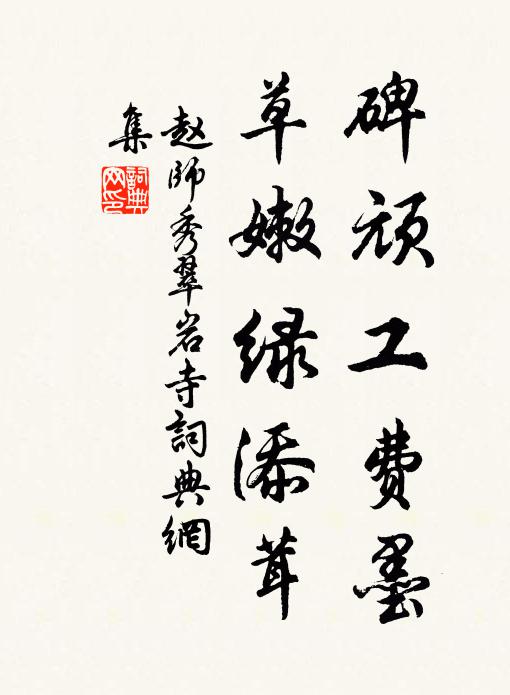 碑頑工费墨
草嫩绿添茸
赵師秀翠岩寺詞典網
集
詞典网印